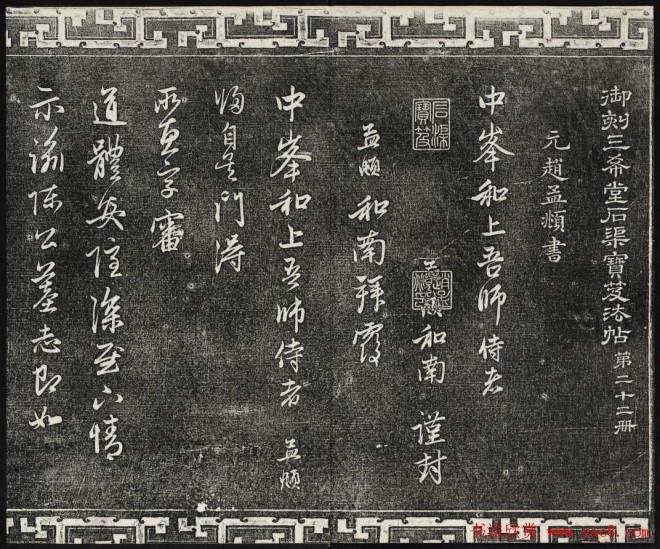 御刻三希堂石渠寶笈法帖 第二十二冊
元趙孟頫書
中峯和上吾師侍者
石渠寶笈
和南 謹封
孟頫 和南拜覆
中峯和上吾師侍者 孟頫
自吳門得
所惠字審
道體安隱深慰下情
示諭陳公墓志即如
书法欣赏 www.yac8.com